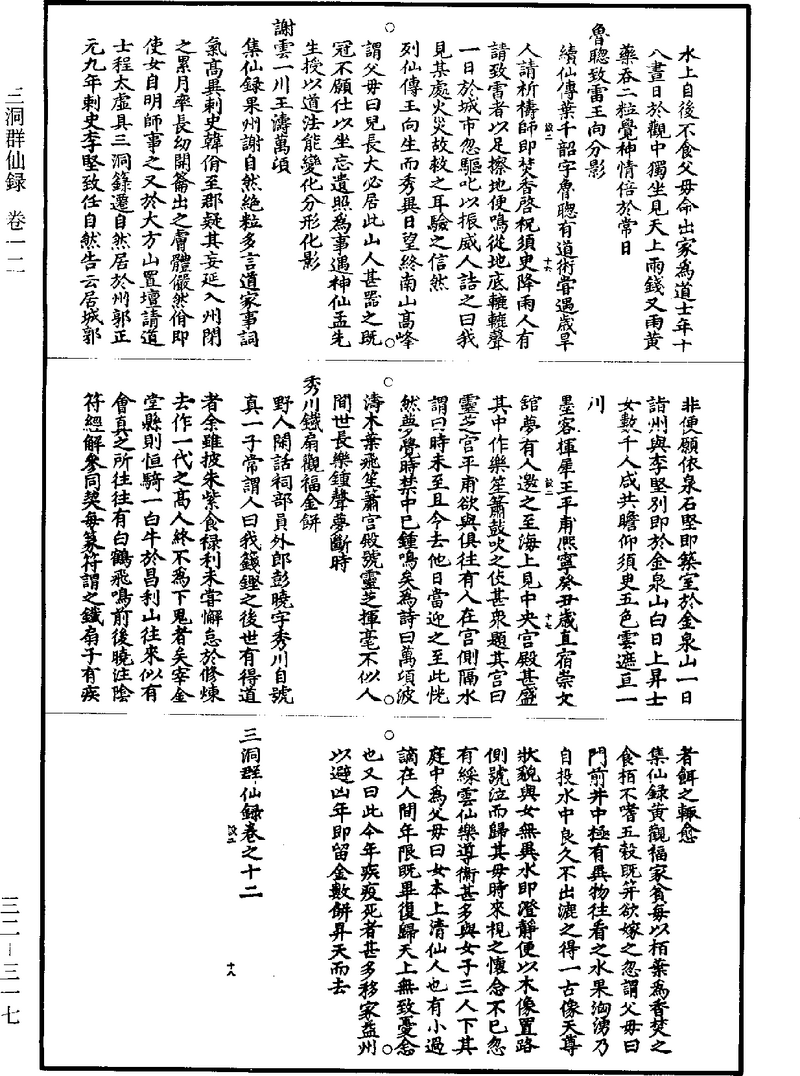 三洞群仙録 卷一二
三二—三一七
水上自後不食父母命出家爲道士年十
八晝日於觀中獨坐見天上雨錢又雨黃
藥吞二粒覺神情倍於常日
魯聰致雷王向分影
續仙傳葉千韶字魯聰有道術嘗遇歲旱
人請祈禱師即焚香啓祝須臾降雨人有
請致雷者以足擦地便鳴從地底轆轆聲
一日於城市忽驅叱以振威人詰之曰我
見某處火災故救之耳驗之信然
列仙傳王向生而秀異日望終南山高峰
謂父母曰兒長大必居此山人甚器之既
冠不願仕以坐忘遺照爲事遇神仙孟先
生授以道法能變化分形化影
謝雲一川王濤萬頃
集仙録果州謝自然絶粒多言道家事詞
氣高異刺史韓佾至郡疑其妄延入州閉
之累月率長幼開籥出之膚體儼然佾即
使女自明師事之又於大方山置壇請道
士程太虛具三洞籙遷自然居於州郭正
元九年刺史李堅致任自然告云居城郭
非便願依泉石堅即築室於金泉山一日
詣州與李堅别即於金泉山白日上昇士
女數千人咸共瞻仰須臾五色雲遮亘一
川
墨客揮犀王平甫熈寧癸丑歲直宿崇文
舘夢有人邀之至海上見中央宫殿甚盛
其中作樂笙簫鼓吹之伎甚衆題其宫曰
靈芝宫平甫欲與俱往有人在宫側隔水
謂曰時未至且令去他日當迎之至此恍
然夢覺時禁中已鍾鳴矣爲詩曰萬頃波
濤木葉飛笙簫宫殿號靈芝揮毫不似人
間世長樂鍾聲夢斷時
秀川鐵扇觀福金餅
野人閑話祠部員外郎彭曉字秀川自號
真一子常謂人曰我籛鏗之後世有得道
者余雖披朱紫食禄利未嘗懈怠於修煉
去作一代之高人終不爲下鬼者矣宰金
堂縣則恒騎一白牛於昌利山往來似有
會真之所往往有白鶴飛鳴前後曉注陰
符經解參同契每篆符謂之鐵扇子有疾
者餌之輒愈
集仙録黃觀福家貧每以栢葉爲香焚之
食栢不嗜五穀既笄欲嫁之忽謂父母曰
門前井中極有異物往看之水果洶湧乃
自投水中良久不出漉之得一古像天尊
狀貌與女無異水即澄靜便以木像置路
側號泣而歸其母時來視之懷念不已忽
有綵雲仙樂導衛甚多與女子三人下其
庭中爲父母曰女本上清仙人也有小過
謫在人間年限既畢復歸天上無致憂念
也又曰此今年疾疫死者甚多移家益州
以避凶年即留金數餅昇天而去
三洞群仙録卷之十二